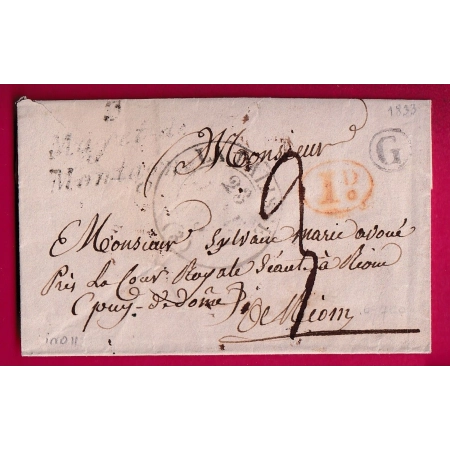 1833
Monsieur
G
1 D.
3
Monsieur Sylvain marie avoué
Près La Cour Royale Séant à Riom
(puy-de-dôme)
de Riom